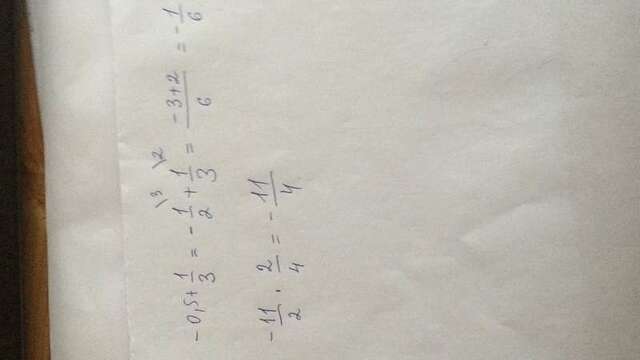 -0,5+1/3 = -1/2\3 + 1/3\2 = -3+2/6 = -1/6
-11/2 · 2/4 = -11/4